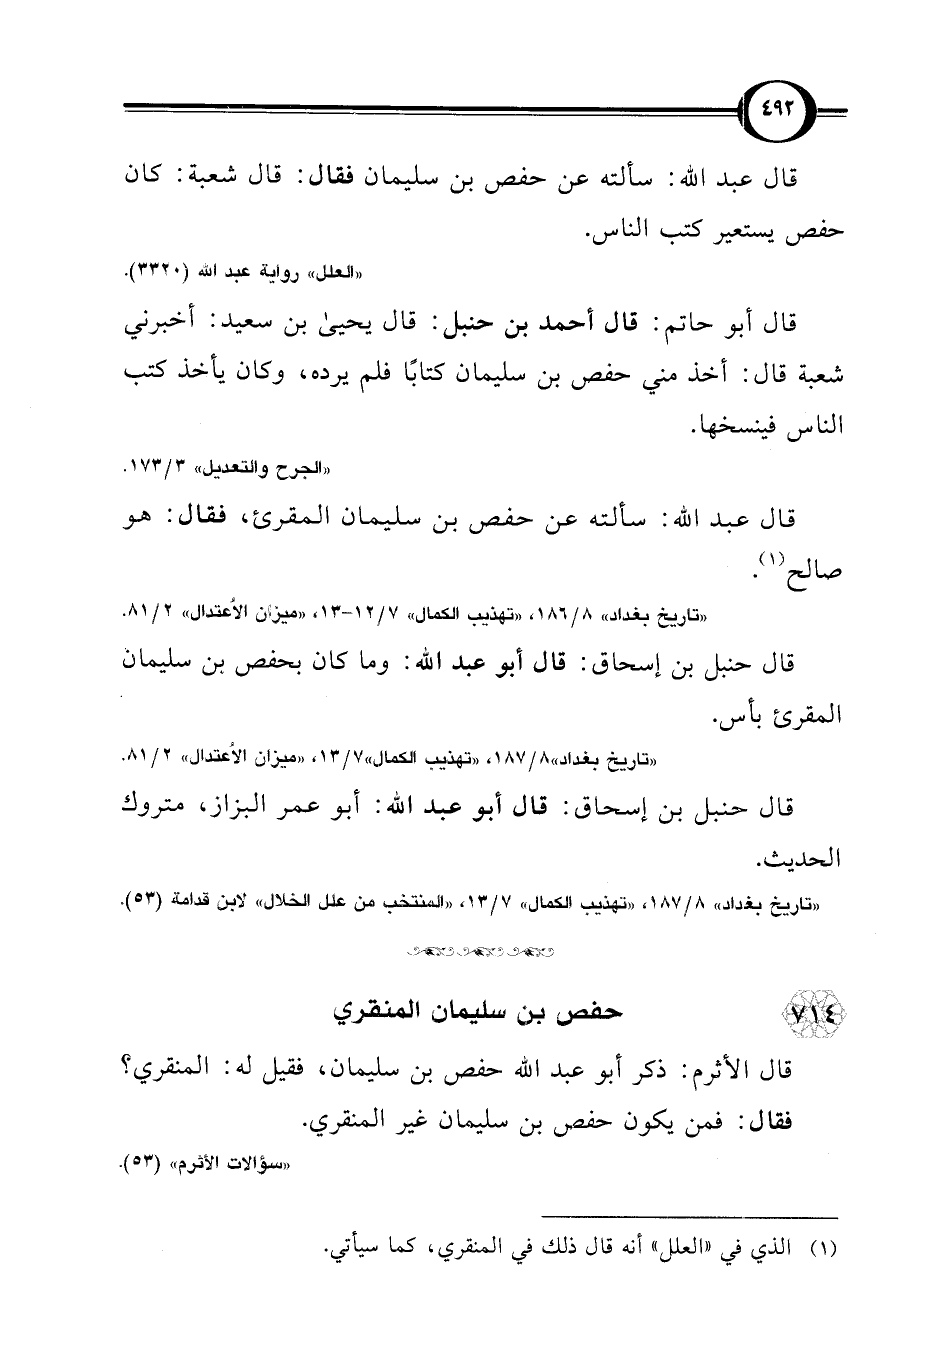 ٤٩٢
قال عبد الله: سألته عن حفص بن سليمان فقال: قال شعبة: كان
حفص يستعير كتب الناس.
«العلل» رواية عبد الله (٣٣٢٠).
قال أبو حاتم: قال أحمد بن حنبل: قال يحيىٰ بن سعيد: أخبرني
شعبة قال: أخذ مني حفص بن سليمان كتابًا فلم يرده، وكان يأخذ كتب
الناس فينسخها.
«الجرح والتعديل» ٣/ ١٧٣.
قال عبد الله: سألته عن حفص بن سليمان المقرئ، فقال: هو
صالح(١).
«تاريخ بغداد» ٨/ ١٨٦، «تهذيب الكمال» ٧/ ١٢-١٣، «ميزان الأعتدال» ٢/ ٨١.
قال حنبل بن إسحاق: قال أبو عبد الله: وما كان بحفص بن سليمان
المقرئ بأس.
«تاريخ بغداد»٨/ ١٨٧، «تهذيب الكمال»٧/ ١٣، «ميزان الأعتدال» ٢/ ٨١.
قال حنبل بن إسحاق: قال أبو عبد الله: أبو عمر البزاز، متروك
الحديث.
«تاريخ بغداد» ٨/ ١٨٧، «تهذيب الكمال» ٧/ ١٣، «المنتخب من علل الخلال» لابن قدامة (٥٣).
٧١٤ حفص بن سليمان المنقري
قال الأثرم: ذكر أبو عبد الله حفص بن سليمان، فقيل له: المنقري؟
فقال: فمن يكون حفص بن سليمان غير المنقري.
«سؤالات الأثرم» (٥٣).
(١) الذي في «العلل» أنه قال ذلك في المنقري، كما سيأتي.